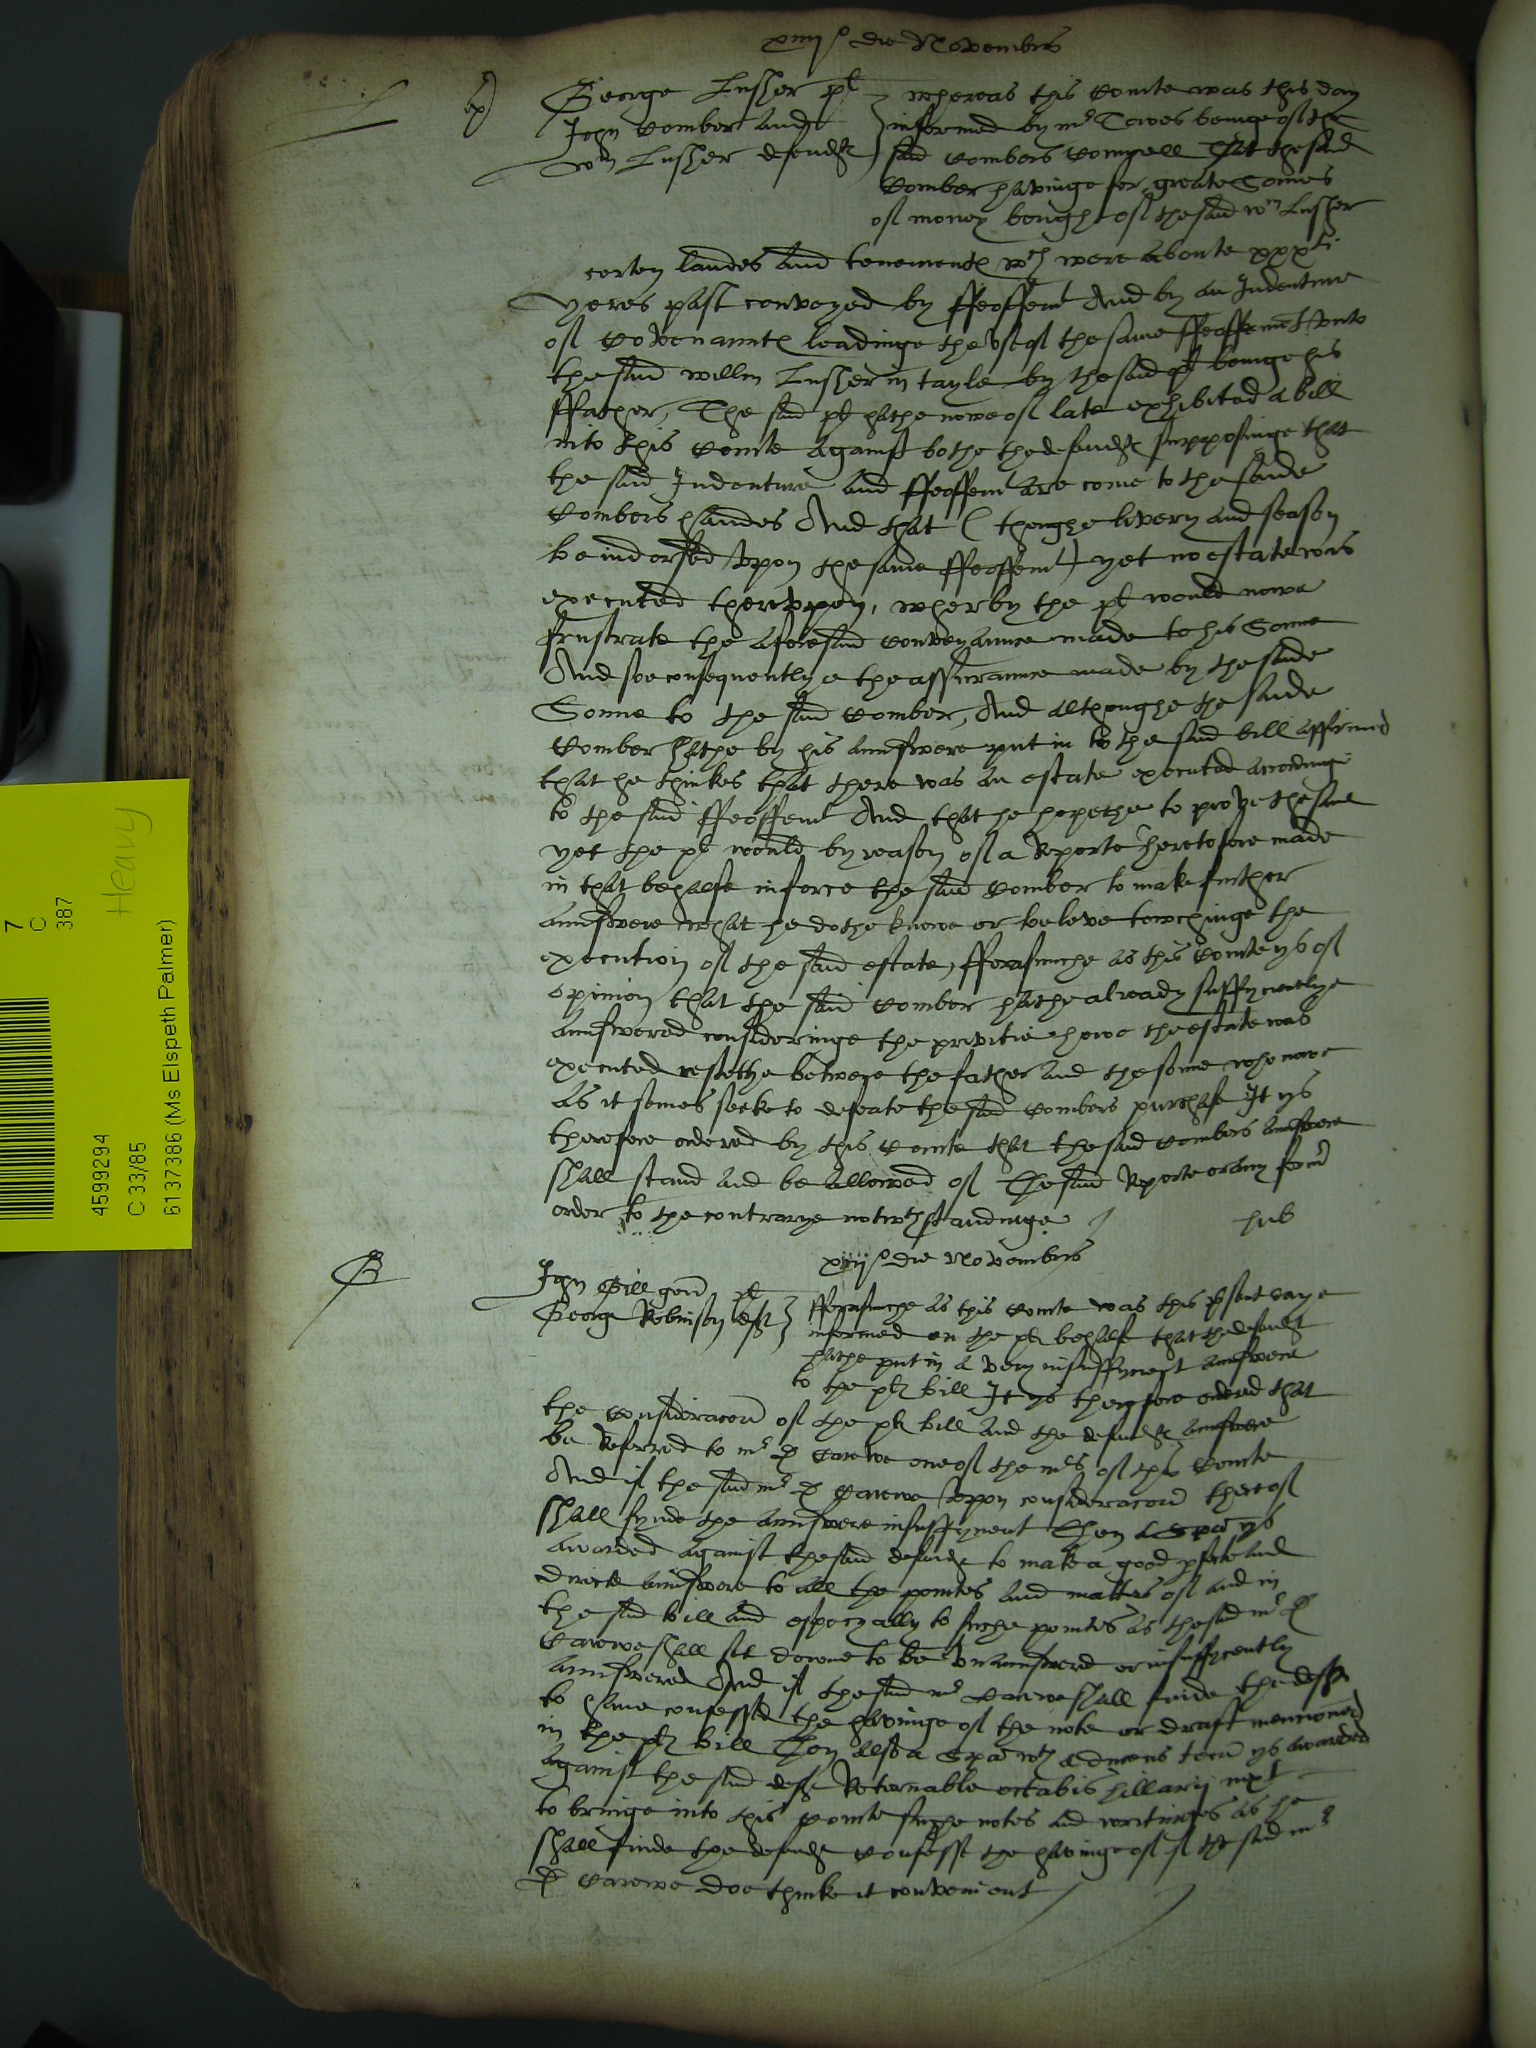 xiiij° die Novembris
ex)
George Lussher pl
John Comber and
Wm Lussher defendt
whereas this Courte was this day
informed by mr Tawes beinge of the
said Combers Councell That the said
Comber havinge for greate Somes
of money bought of the said Wm Lussher
certen landes and tenementes wch were aboute xxxti
yeres past conveyed by ffeoffemt And by an Indenture
of Covenauntes leadinge the use of the same ffeoffemt unto
the said willm Lussher in tayle by the said pl beinge his
ffather, The said pl hathe nowe of late exhibited a bill
into this Courte against bothe the defendtes supposinge that
the said Indenture and ffeoffemt are come to the saide
Combers handes And that (thoughe livery and season
be indorsed uppon the same ffeoffemt) yet no estate was
executed therupon, wherby the pl would nowe
frustrate the aforesaid conveyaunce made to his Sonne
And soe consequentlye the assuraunce made by the saide
Sonne to the said Comber, And althoughe the saide
Comber hathe by his aunswere put in to the said bill affirmed
that he thinkes that there was an estate executed accordinge
to the said ffeoffemt And that he hopethe to prove the same
yet the pl would by reason of a Reporte heretofore made
in that behalfe inforce the said Comber to make further
aunswere what he dothe knowe or beleve towchinge the
execution of the said estate, fforasmuche as this Courte ys of
opinion that the said Comber hathe already suffycientlye
aunswered consideringe the privitie howe the estate was
executed restethe betwene the father and the sonne who nowe
as it semes seeke to defeate the said Combers purchase It ys
therefore ordered by this Courte that the said Combers aunswere
shall stand and be allowed of The said Reporte or any former
order to the contrarye notwthstandinge
hub
xiiij° die Novembris
B
John Gill gen pl
George Robinson deft
fforasmuche as this Courte was this present daye
informed on the pl behalfe that the defendt
hathe put in a very insuffycient aunswere
to the pl bill It ys therfore ordered that
the consideracon of the pl bill and the defendtes aunswere
be Referred to mr D Carewe one of the mrs of this Courte
And if the said mr D Carewe uppon consideracon thereof
shall fynde the aunswere insuffycient Then a Spa ys
awarded against the said defendt to make a good perfecte and
directe aunswere to all the pointes and matters of and in
the said bill and especyally to suche pointes as the said mr D
Carewe shall set downe to be unaunswered or insuffycently
aunswered And if the said mr Carewe shall finde the deft
to have confessed the havinge of the note or draft mencioned
in the pl bill Then also a Spa wth a duces tecum ys awarded
against the said deft Retornable octabis hillarij next
to bringe into this Courte suche notes and writinges as he
shall finde the defendt confesse the havinge of if the said mr
D Carewe doe thinke it convenient
7
C
387
Heavy
4599294
C 33/85
6137386 (Ms Elspeth Palmer)